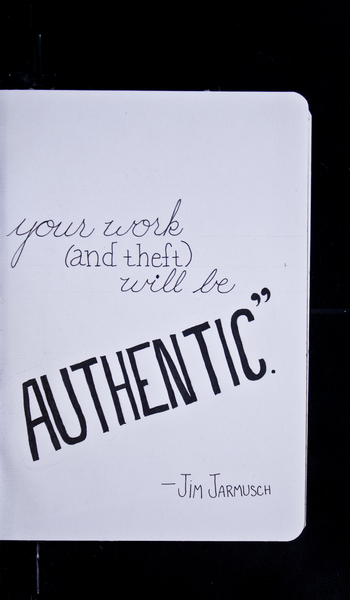 your work
(and theft)
will be
AUTHENTIC”.
—JIM JARMUSCH